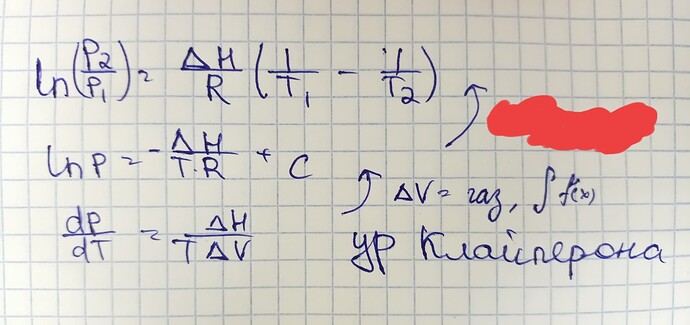 ln(P2/P1) = ΔH/R (1/T1 - 1/T2)
ln P = -ΔH/T·R + C
ΔV = газ, ∫f(x)
dP/dT = ΔH/TΔV
ур Клайперона